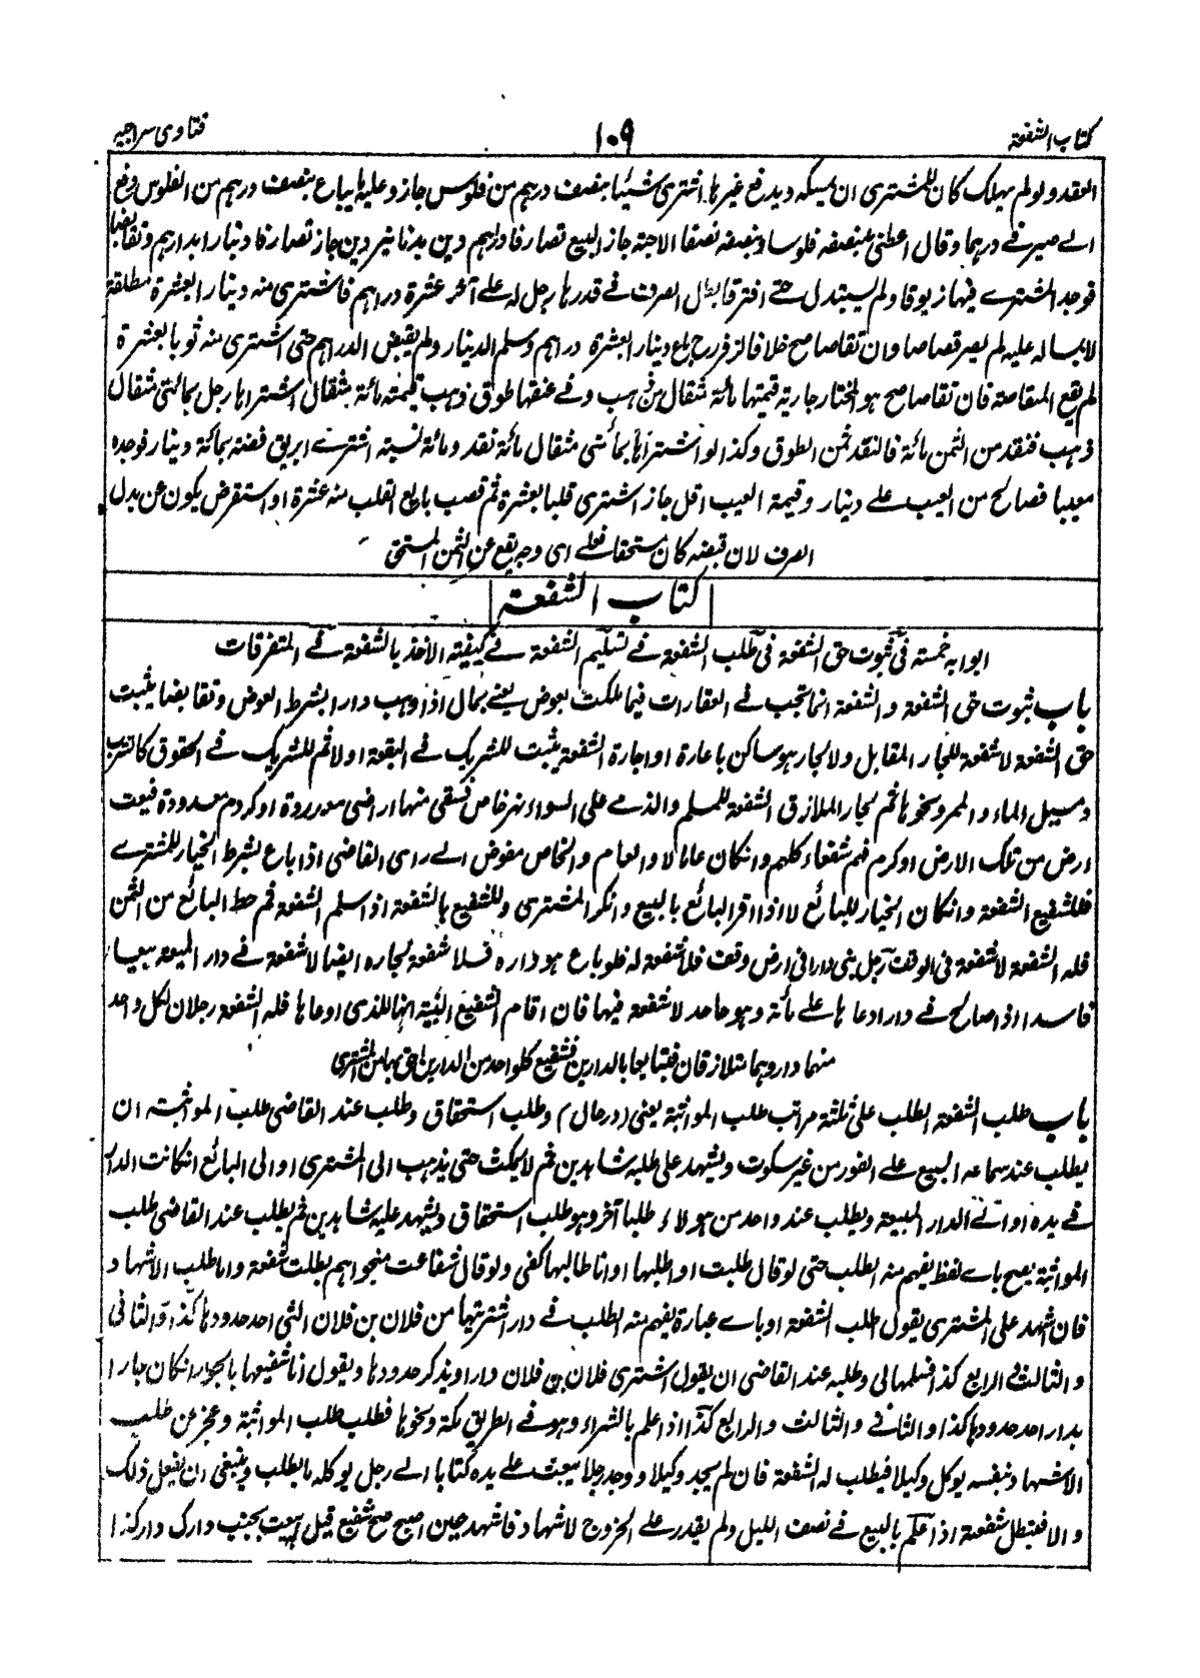 كتاب الشفعة
١٠٩
فتاوى سراجيه
العقد ولو لم يهلك كان للمشترى ان يمسكه ويدفع غيرها اشترى شيئا بنصف درهم من فلوس جاز وعليه ما يباع بنصف درهم من الفلوس دفع
الى صيرفى درهما وقال اعطنى بنصفه فلوسا وبنصفه نصفا الا حبة جاز البيع تصارفا دراهم دين بدنانير دين جاز تصارفا دينارا بدراهم وتقابضا
فوجد المشترى فيها زيوفا ولم يستبدل حتى افترقا بطل الصرف فى قدرها رجل له على آخر عشرة دراهم فاشترى منه دينارا بعشرة مطلقة
لا بماله عليه لم يصر قصاصا وان تقاصا صح خلافا لزفر رح باع دينارا بعشرة دراهم وسلم الدينار ولم يقبض الدراهم حتى اشترى منه ثوبا بعشرة
لم يقع المقاصة فان تقاصا صح هو المختار جارية قيمتها مائة مثقال من ذهب وفى عنقها طوق ذهب قيمته مائة مثقال اشتراها رجل بمائتى مثقال
ذهب فنقد من الثمن مائة فالنقد ثمن الطوق وكذا لو اشتراها بمائتى مثقال مائة نقد ومائة نسيئة اشترى ابريق فضة بمائة دينار فوجده
معيبا فصالح من العيب على دينار وقيمة العيب اقل جاز اشترى قلبا بعشرة ثم غصب بايع القلب منه عشرة او استقرض يكون عن بدل
الصرف لان قبضه كان مستحقا فعلى اى وجه يقع عن الثمن المستحق
كتاب الشفعة
ابوابه خمسة فى ثبوت حق الشفعة فى طلب الشفعة فى تسليم الشفعة فى كيفية الاخذ بالشفعة فى المتفرقات
باب ثبوت حق الشفعة والشفعة انما تجب فى العقارات فيما ملكت بعوض يعنى بمال اذا وهب دارا بشرط العوض وتقابضا يثبت
حق الشفعة لا شفعة للجار المقابل ولا لجار هو ساكن باعارة او اجارة الشفعة يثبت للشريك فى البقعة اولا ثم للشريك فى الحقوق كالشرب
ومسيل الماء والممر ونحوها ثم لجار الملازق الشفعة للمسلم والذمى على السواء نهر خاص تسقى منها اراضى معدودة او كروم معدودة فبيعت
ارض من تلك الارض او كرم فهم شفعاء كلهم وانكان عاما لا والعام والخاص مفوض الى راى القاضى اذا باع بشرط الخيار للمشترى
فللشفيع الشفعة وانكان الخيار للبائع لا اذا اقر البائع بالبيع وانكر المشترى وللشفيع بالشفعة اذا سلم الشفعة ثم حط البائع من الثمن
فله الشفعة لا شفعة فى الوقف رجل بنى دارا فى ارض وقف فلا شفعة له فلو باع هو داره فلا شفعة لجاره ايضا لا شفعة فى دار المبيعة بيعا
فاسدا اذا صالح فى دار ادعاها على مائة وهو جاحد لا شفعة فيها فان اقام الشفيع البينة انها للذى ادعاها فله الشفعة رجلان لكل واحد
منهما دار وهما متلازقان فتبايعا بالدارين فشفيع كلواحد من الدارين احق بها من المشترى
باب طلب الشفعة الطلب على ثلثة مراتب طلب المواثبة يعنى (در حال) وطلب استحقاق وطلب عند القاضى طلب المواثبة ان
يطلب عند سماعه البيع على الفور من غير سكوت ويشهد على طلبه شاهدين ثم لا يمكث حتى يذهب الى المشترى او الى البائع انكانت الدار
فى يده او الى الدار المبيعة ويطلب عند واحد من هولاء طلبا آخر وهو طلب استحقاق ويشهد عليه شاهدين ثم يطلب عند القاضى طلب
المواثبة يصح باى لفظ يفهم منه الطلب حتى لو قال طلبت او اطلبها او انا طالبها كفى ولو قال شفاعت ميخواهم بطلت شفعة واما طلب الاشهاد
فان اشهد على المشترى يقول طلب الشفعة او باى عبارة يفهم منه الطلب فى دار اشتريتها من فلان بن فلان التى احد حدودها كذا والثانى
والثالث والرابع كذا فسلمها لى وطلبه عند القاضى ان يقول اشترى فلان بن فلان دارا ويذكر حدودها ويقول انا شفيعها بالجوار انكان جارا
بدار احد حدودها كذا والثانى والثالث والرابع كذا اذا علم بالشراء وهو فى الطريق مكة ونحوها فطلب طلب المواثبة وعجز عن طلب
الاشهاد بنفسه يوكل وكيلا فيطلب له الشفعة فان لم يجد وكيلا ووجد رجلا يبعث على يده كتابا الى رجل يوكله بالطلب وينبغى ان يفعل ذلك
والا فتبطل شفعة اذا علم بالبيع فى نصف الليل ولم يقدر على الخروج لاشهاد فاشهد حين اصبح صح شفيع قيل بيعت بجنب دارك دار كذا